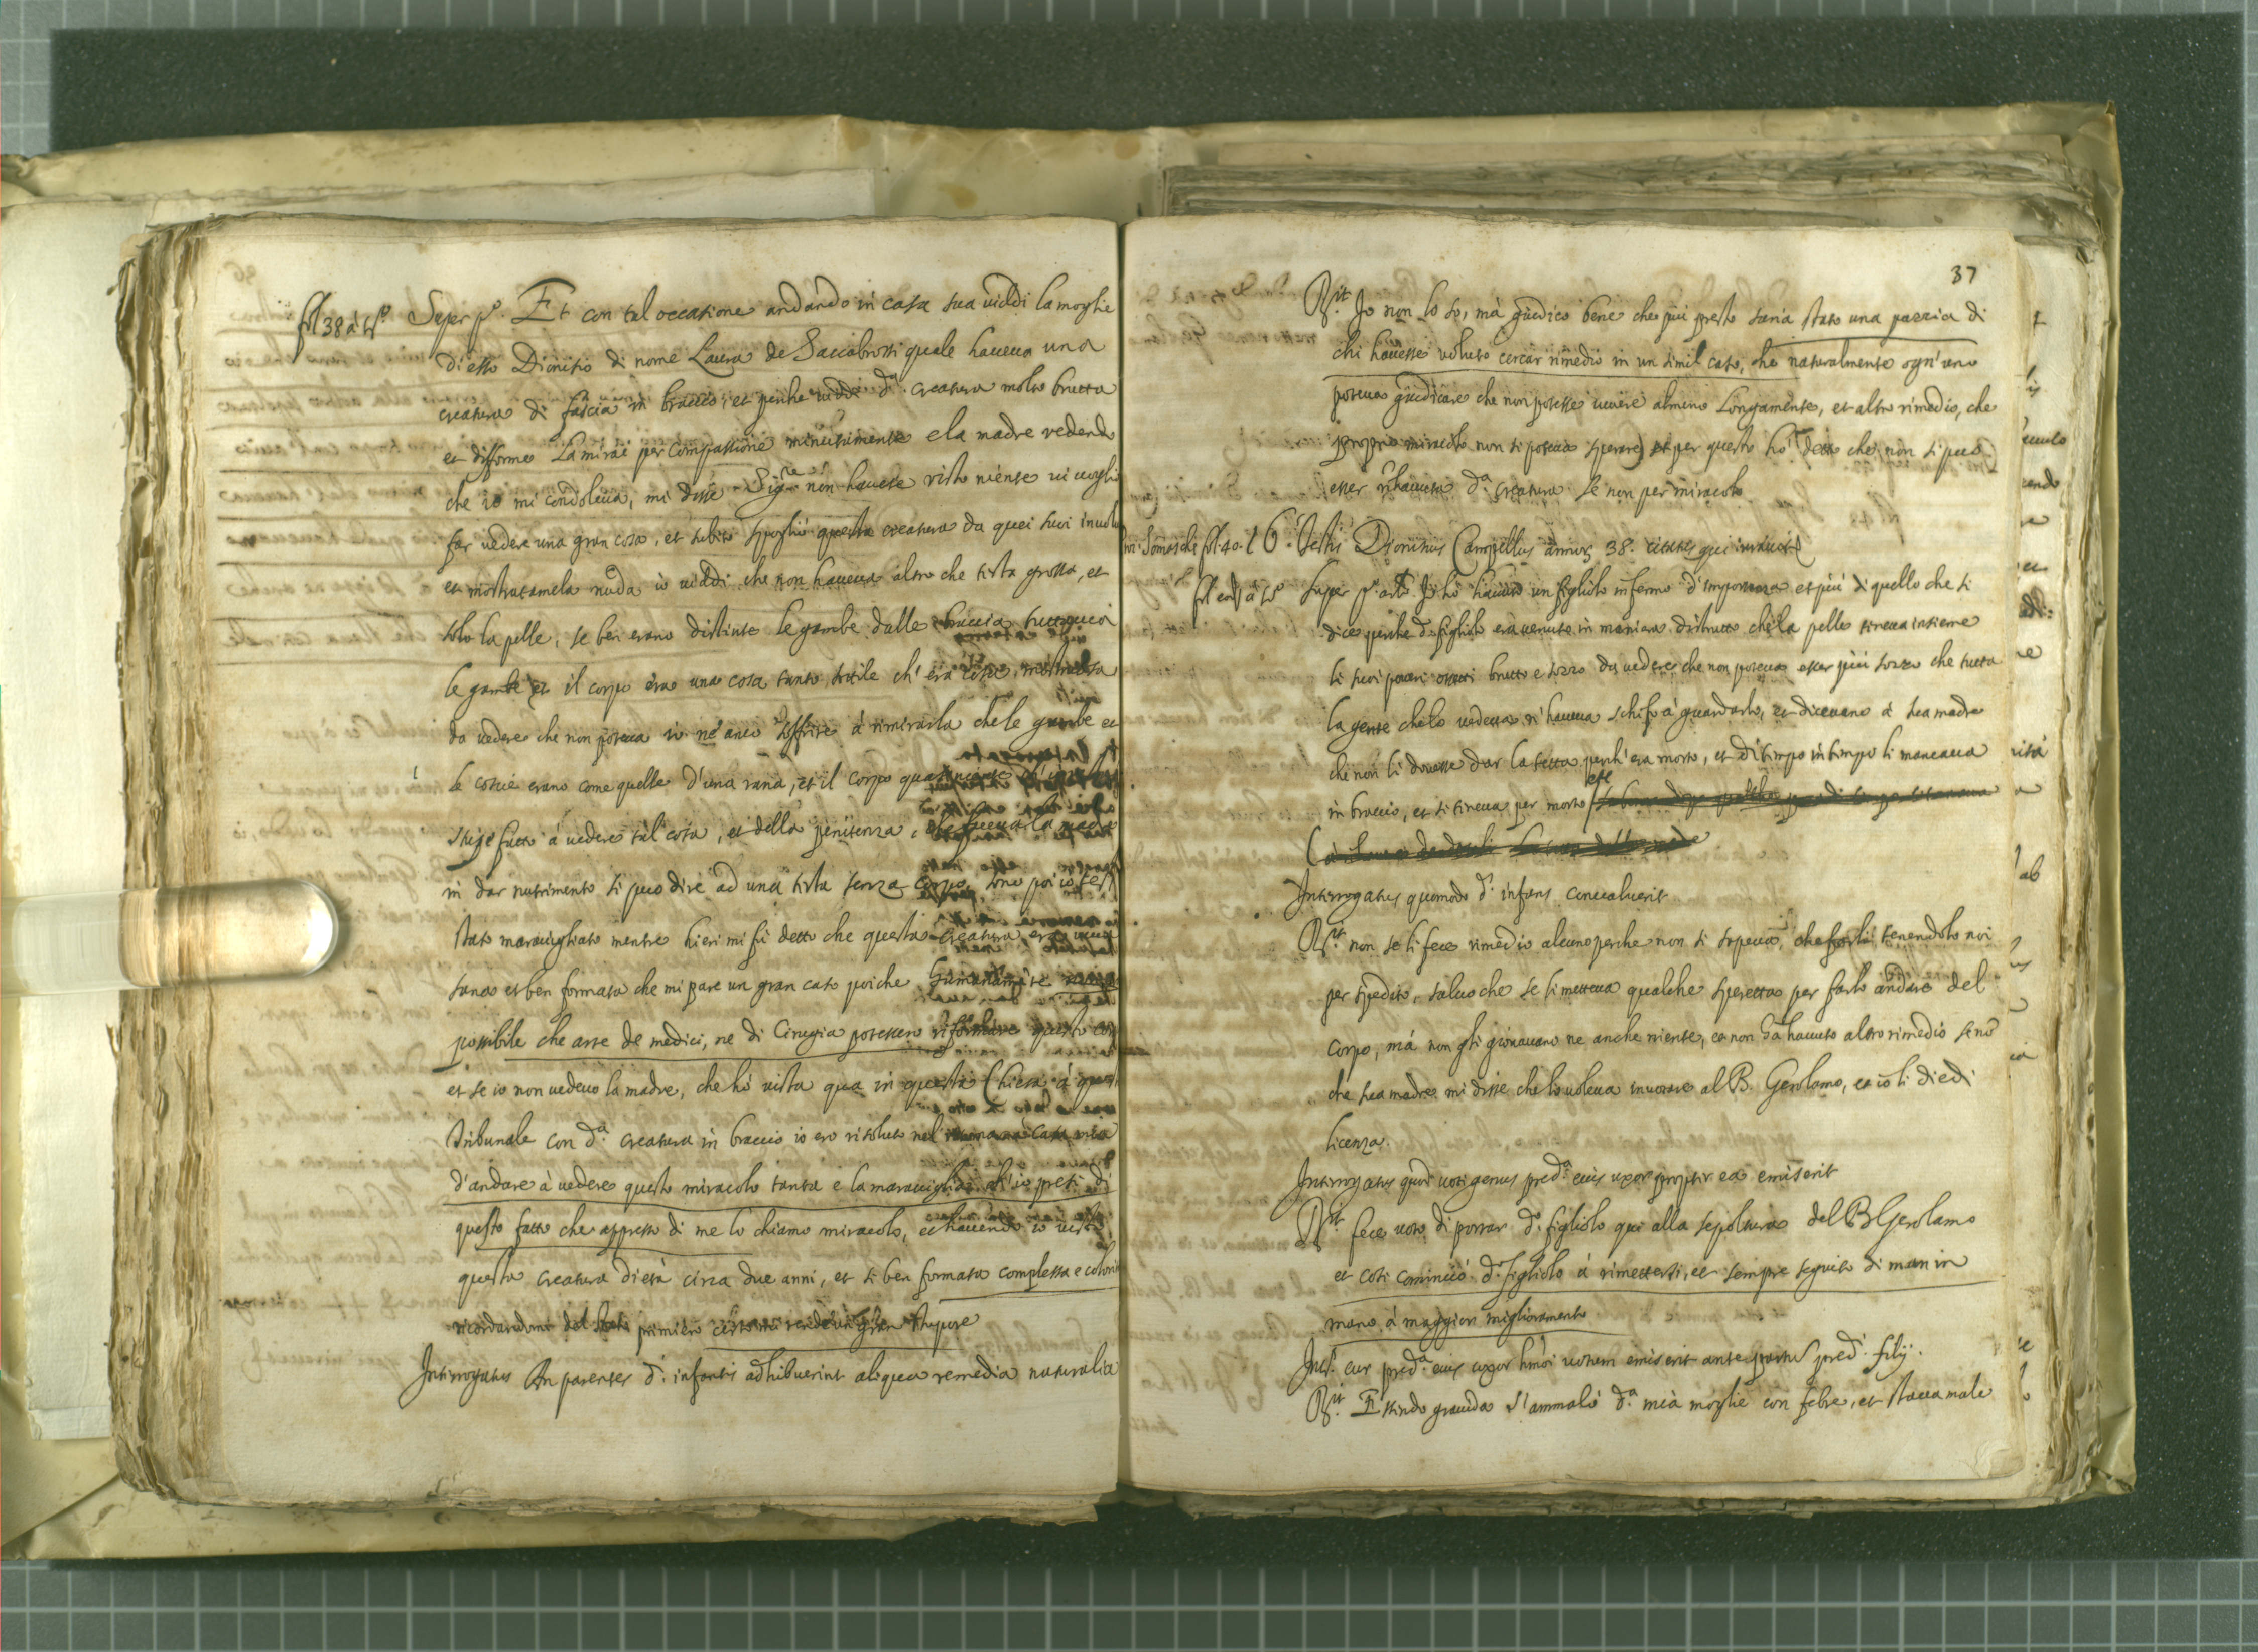 fol 38 à tº. Super pº. Et con tal occasione andando in casa sua viddi la moglie
di esso Dionisio di nome Laura de Saccabrossi quale haveva una
creatura di fascia in braccio, et perche viddi dª. creatura molto brutta
et difforme La mirai per compassione minutamente e la madre vedendo
che io mi condoleva, mi disse Sigre non havete visto niente vi voglio
far vedere una gran cosa, et subito spogliò questa creatura da quei suoi
et mostratamela nuda io viddi che non haveva altro che testa grossa, et
solo la pelle, se ben erano distinte le gambe dalle braccia
le gambe et il corpo era una cosa tanto sotile ch'era cosa mostruosa
da vedere che non poteva io ne anco soffrire à rimirarla che le gambe et
le coscie erano come quelle d'una rana, et il corpo quasi niente
fatto à vedere tal cosa, et della penitenza, che faceva la madre
in dar nutrimento si puo dire ad una testa senza corpo, sono poi io
stato maravigliato mentre hieri mi fù detto che questa creatura era
sana et ben formata che mi pare un gran caso poiche humanamente
possibile che arte de medici, ne di Cirugia potessero riformare questo
et se io non vedevo la madre, che hò vista qua in questa Chiesa à
Tribunale con dª. creatura in braccio io ero risoluto nel casa mia
d'andare à vedere questo miracolo tanta e la maraviglia ch'io presi di
questo fatto che appresso di me lo chiamo miracolo, et havendo io visto
questa creatura di età circa due anni, et si ben formata complessa e
ricordandomi del stato primiero certo mi rende un gran stupore
Interrogatus An parentes dⁱ. infantis adhibuerint aliqua remedia naturalia
37
Rit. Io non lo so, mà giudico bene che più presto saria stato una pazzia di
chi havesse voluto cercar rimedio in un simil caso, che naturalmente ogn'uno
poteva giudicare che non potesse vivere almeno Longamente, et altro rimedio, che
proprio miracolo non si poteva sperare et per questo hò detto che non si puo
esser rihavuta dª. creatura se non per miracolo
fol. 40. t 6. Testis Dionisius Campellus annor 38. citatus qui
fol eodᵉ à tº Super pº. artº Io hò havuto un figliolo infermo d'importanza et più di quello che si
dice perche dº. figliolo era venuto in maniera distrutto che la pelle teneva insieme
li suoi poveri ossetti brutto e sozzo da vedere che non poteva esser più sozzo che tutta
la gente che lo vedeva n'haveva schifo à guardarlo, et dicevano à sua madre
che non li dovesse dar la tetta perch'era morto, et di tempo in tempo li mancava
in braccio, et si teneva per morto
Interrogatus quomodo dˢ. infans convaluerit
Rit. non se li fece rimedio alcuno perche non si sapeva che farli tenendolo noi
per spedito, salvo che se li metteva qualche speretta per farlo andare del
corpo, mà non gli giovavano ne anche niente, et non hà havuto altro rimedio se nò
che sua madre mi disse che lo voleva invotare al B. Gerolamo, et io li diedi
licenza.
Interrogatus quod voti genus predª. eius uxor propter ea emiserit
Rit. fece voto di portar dº. figliolo qui alla sepoltura del B Gerolamo
et cosi cominciò dº. figliolo à rimettersi, et sempre seguito di man in
mano à maggior miglioramento
Intˢ. cur predª. eius uxor hmoi votum emiserit ante partus predⁱ. filij.
Rit. Essendo gravida s'ammalò dª. mia moglie con febre, et stava male